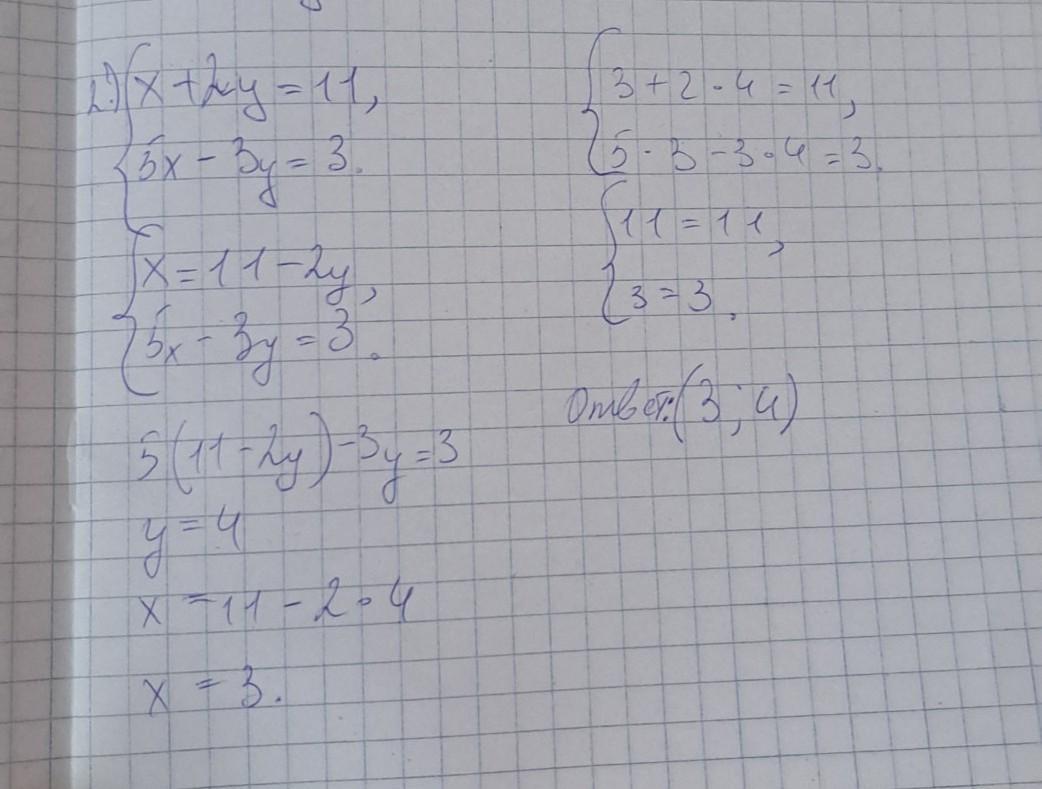 2.) { x + 2y = 11,
5x - 3y = 3.
{ x = 11 - 2y,
5x - 3y = 3.
5(11 - 2y) - 3y = 3
y = 4
x = 11 - 2 · 4
x = 3.
{ 3 + 2 · 4 = 11,
5 · 3 - 3 · 4 = 3.
{ 11 = 11,
3 = 3.
Ответ: (3; 4)